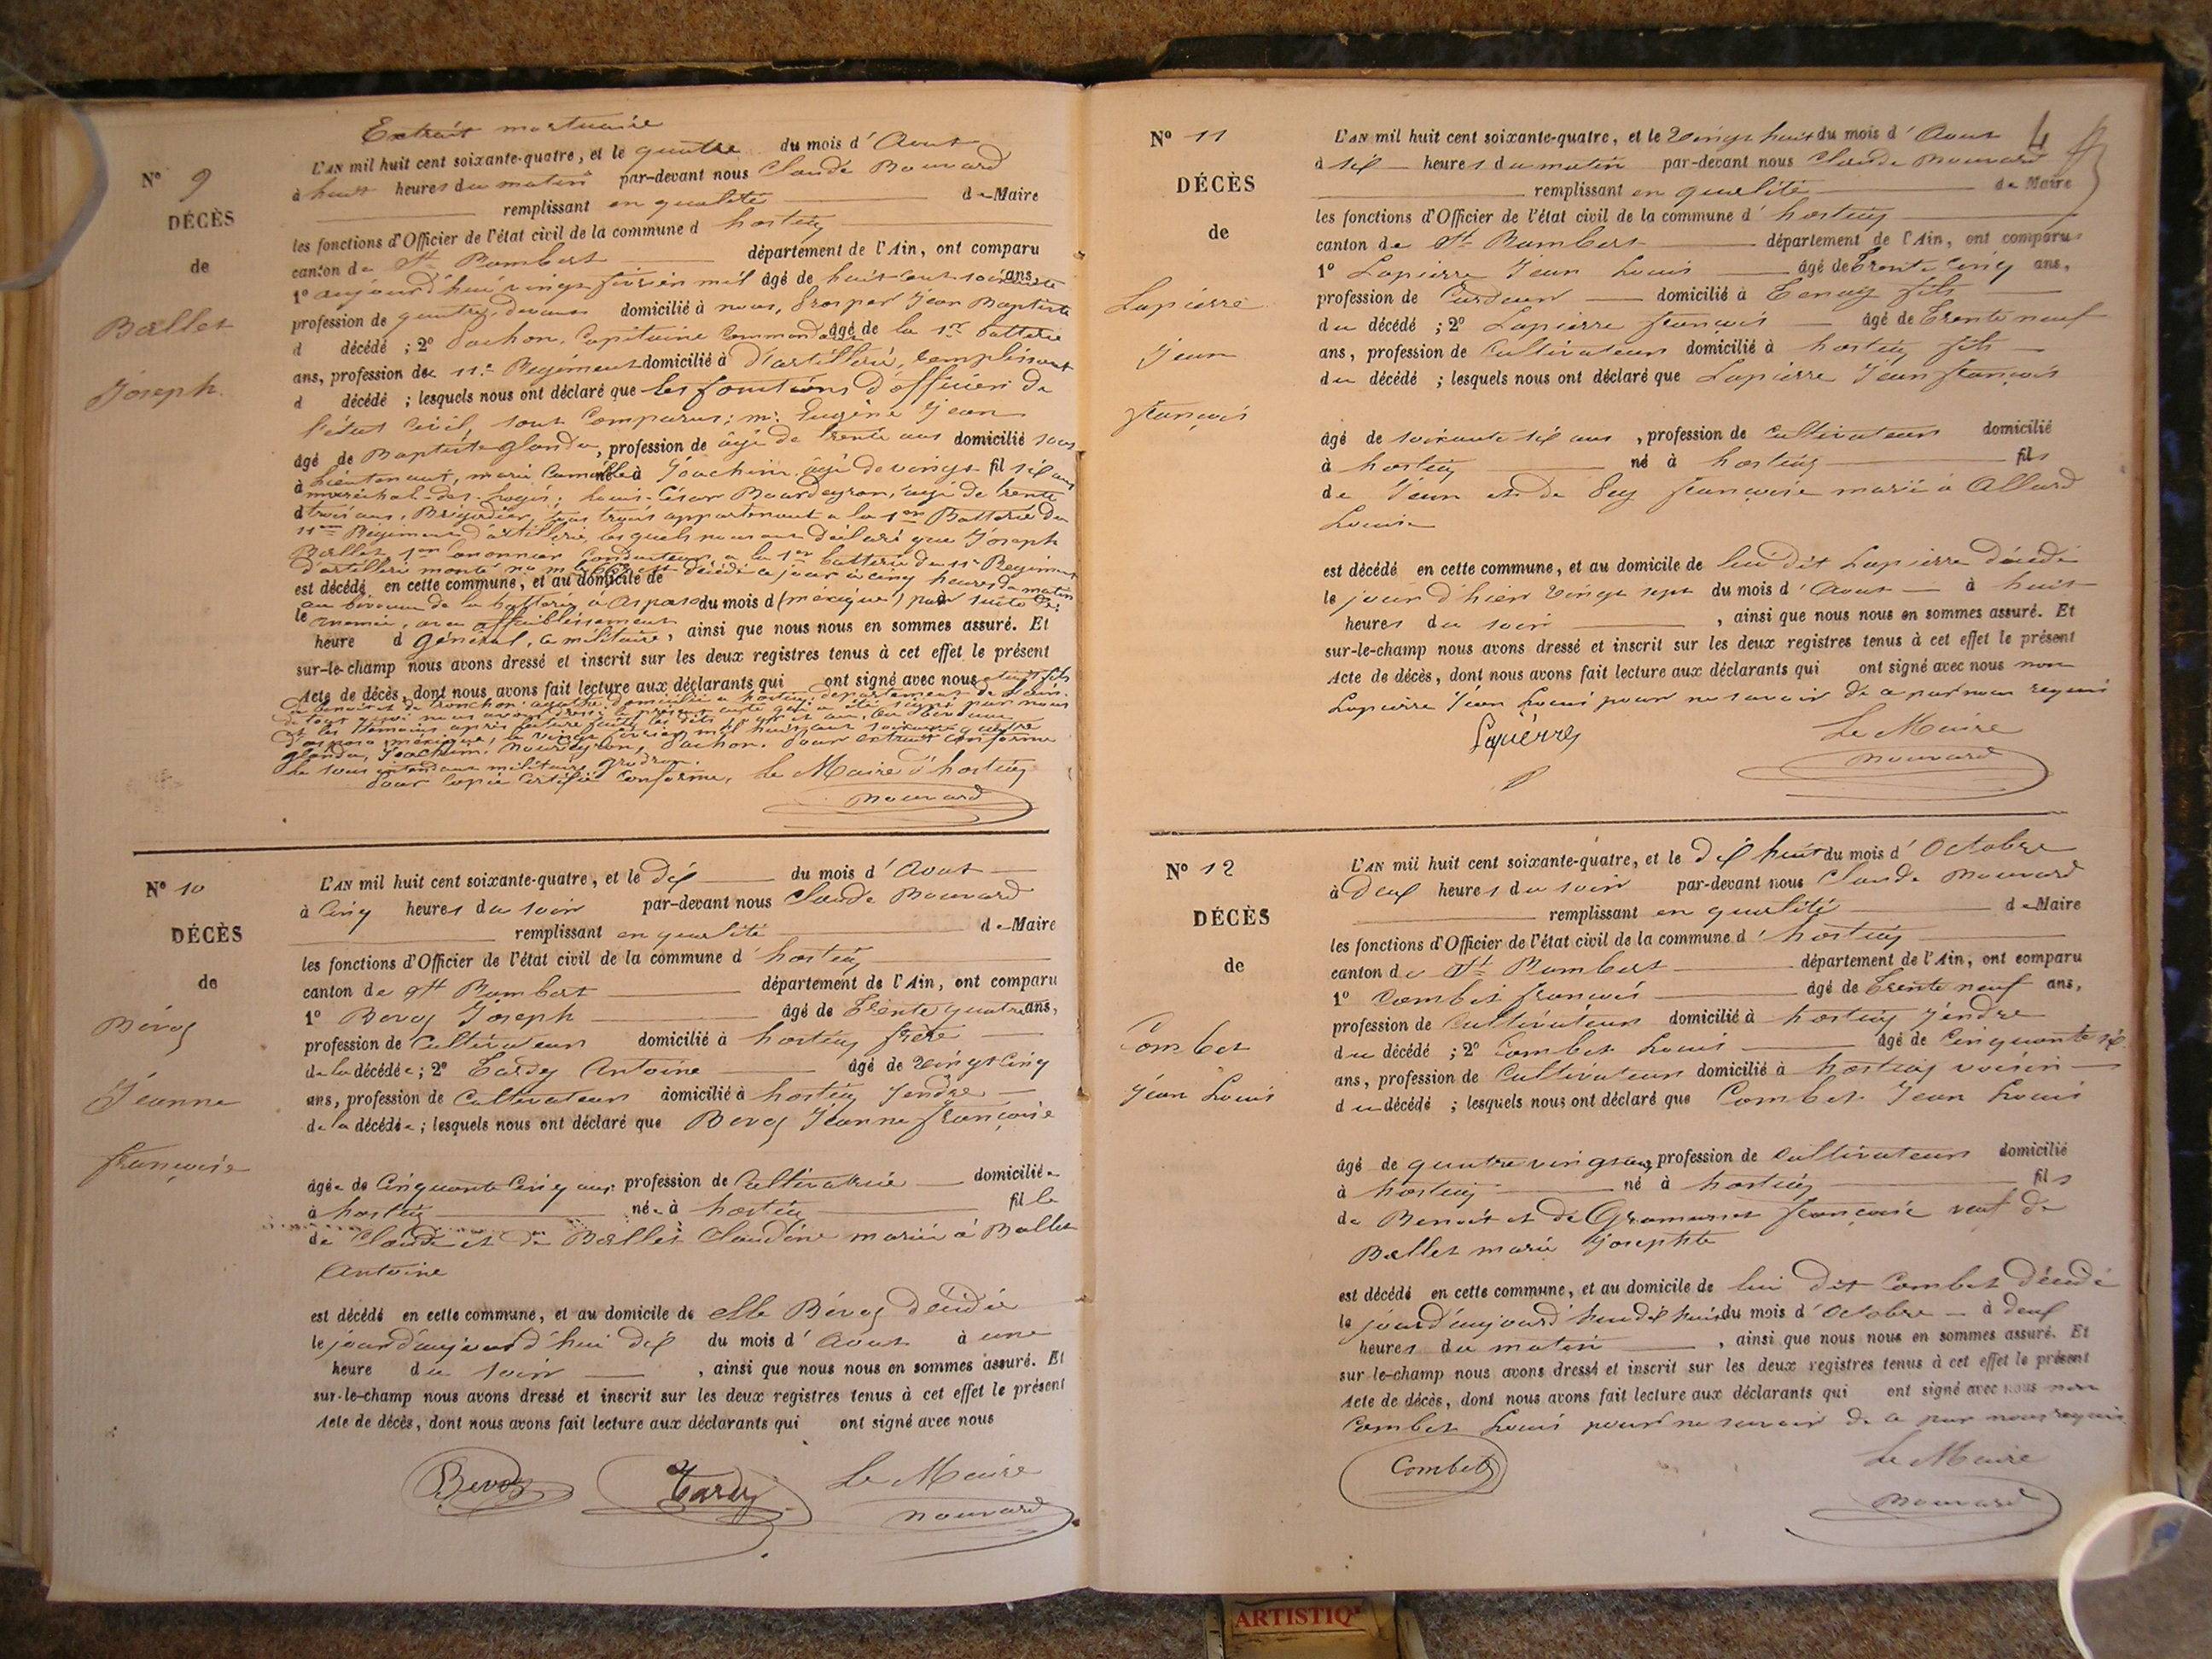 Extrait mortuaire
N° 9
DÉCÈS
de
Ballet
Joseph
L'AN mil huit cent soixante-quatre, et le quatre du mois d'Aout
à huit heures du matin par-devant nous Claude Bouvard
remplissant en qualité de Maire
les fonctions d'Officier de l'état civil de la commune d hostiaz
canton de St Rambert département de l'Ain, ont comparu
1° aujourd'hui vingt février mil âgé de huit cent soixante ans,
profession de quatre, devant domicilié à nous, Prosper Jean Baptiste
d décédé ; 2° Pachon, Capitaine Commandant âgé de la 1re batterie
ans, profession de 11e Régiment domicilié à d'artillerie, remplissant
d décédé ; lesquels nous ont déclaré que les fonctions d'officier de
l'état Civil, sont Comparus ; Mr Eugène Jean
âgé de Baptiste glandu, profession de âgé de trente ans domicilié sous
à Lieutenant, marie Camille né à Joachim, âgé de vingt fil six ans
maréchal-des-logis ; Louis-César Bourdeyron, âgé de trente
d trois ans, Brigadier, tous trois appartenant a la 1re Batterie du
11me Régiment d'artillerie, lesquels nous ont déclaré que Joseph
Ballet, 1er canonnier Conducteur, a la 1re batterie du 11e Régiment
d'artillerie monté est décédé ce jour à cinq heures du matin
est décédé en cette commune, et au domicile de
au bivouac de la batterie à du mois d (mexique) par à suite
le affaiblissement
heure d général, ce militaire, ainsi que nous nous en sommes assuré. Et
sur-le-champ nous avons dressé et inscrit sur les deux registres tenus à cet effet le présent
Acte de décès, dont nous avons fait lecture aux déclarants qui ont signé avec nous étant fils
de benoit et de tronchon agathe domicilié a hostiaz département de l'ain.
de tout quoi nous avons dressé le présent acte qui a été signé par nous
et les témoins après lecture faite, les dits jour et an, au bivouac
mexique, le vingt février mil huit cent soixante quatre
glandu, Joachim, Bourdeyron, Pachon. Pour extrait conforme
Le sous intendant militaire
Pour Copie Certifié Conforme, Le Maire d'hostiaz
Bouvard
N° 10
DÉCÈS
de
Bévoz
Jeanne
françoise
L'AN mil huit cent soixante-quatre, et le dix du mois d'Aout
à Cinq heures du soir par-devant nous Claude Bouvard
remplissant en qualité de Maire
les fonctions d'Officier de l'état civil de la commune d' hostiaz
canton de St Rambert département de l'Ain, ont comparu
1° Bevoz Joseph âgé de Trente quatre ans,
profession de Cultivateur domicilié à hostiaz frère
de la décédée ; 2° Tardy Antoine âgé de vingt Cinq
ans, profession de Cultivateur domicilié à hostiaz Jendre
de la décédée ; lesquels nous ont déclaré que Bevoz Jeanne françoise
âgée de Cinquante Cinq ans profession de Cultivatrice domiciliée
à hostiaz née à hostiaz fille
de Claude et de Ballet Claudine mariée à Ballet
Antoine
est décédé en cette commune, et au domicile de elle Bévoz décédée
le jour d'aujourd'hui dix du mois d'Aout à une
heure du soir , ainsi que nous nous en sommes assuré. Et
sur-le-champ nous avons dressé et inscrit sur les deux registres tenus à cet effet le présent
Acte de décès, dont nous avons fait lecture aux déclarants qui ont signé avec nous
Bevoz Tardy Le Maire
Bouvard
4
N° 11
DÉCÈS
de
Lapierre
Jean
françois
L'AN mil huit cent soixante-quatre, et le vingt huit du mois d'Aout
à six heures du matin par-devant nous Claude Bouvard
remplissant en qualité de Maire
les fonctions d'Officier de l'état civil de la commune d' hostiaz
canton de St Rambert département de l'Ain, ont comparu
1° Lapierre Jean Louis âgé de Trente Cinq ans,
profession de Cardeur domicilié à Tenay fils
du décédé ; 2° Lapierre françois âgé de Trente neuf
ans, profession de Cultivateur domicilié à hostiaz fils
du décédé ; lesquels nous ont déclaré que Lapierre Jean françois
âgé de soixante six ans, profession de Cultivateur domicilié
à hostiaz né à hostiaz fils
de Jean et de françoise marié à Allard
Louise
est décédé en cette commune, et au domicile de lui dit Lapierre décédé
le jour d'hier vingt sept du mois d'Aout à huit
heures du soir , ainsi que nous nous en sommes assuré. Et
sur-le-champ nous avons dressé et inscrit sur les deux registres tenus à cet effet le présent
Acte de décès, dont nous avons fait lecture aux déclarants qui ont signé avec nous non
Lapierre Jean Louis pour ne savoir de ce par nous requis
Lapierre Le Maire
Bouvard
N° 12
DÉCÈS
de
Combet
Jean Louis
L'AN mil huit cent soixante-quatre, et le dix huit du mois d'Octobre
à deux heures du soir par-devant nous Claude Bouvard
remplissant en qualité de Maire
les fonctions d'Officier de l'état civil de la commune d' hostiaz
canton de St Rambert département de l'Ain, ont comparu
1° Combet françois âgé de Trente neuf ans,
profession de Cultivateur domicilié à hostiaz Jendre
du décédé ; 2° Combet Louis âgé de Cinquante six
ans, profession de Cultivateur domicilié à hostiaz voisin
du décédé ; lesquels nous ont déclaré que Combet Jean Louis
âgé de quatre vingts ans, profession de Cultivateur domicilié
à hostiaz né à hostiaz fils
de Benoit et de françoise veuf de
Ballet marie Josephte
est décédé en cette commune, et au domicile de lui dit Combet décédé
le jour d'aujourd'hui dix huit du mois d'Octobre à deux
heures du matin , ainsi que nous nous en sommes assuré. Et
sur-le-champ nous avons dressé et inscrit sur les deux registres tenus à cet effet le présent
Acte de décès, dont nous avons fait lecture aux déclarants qui ont signé avec nous non
Combet Louis pour ne savoir de ce par nous requis
Combet Le Maire
Bouvard
ARTISTIQ